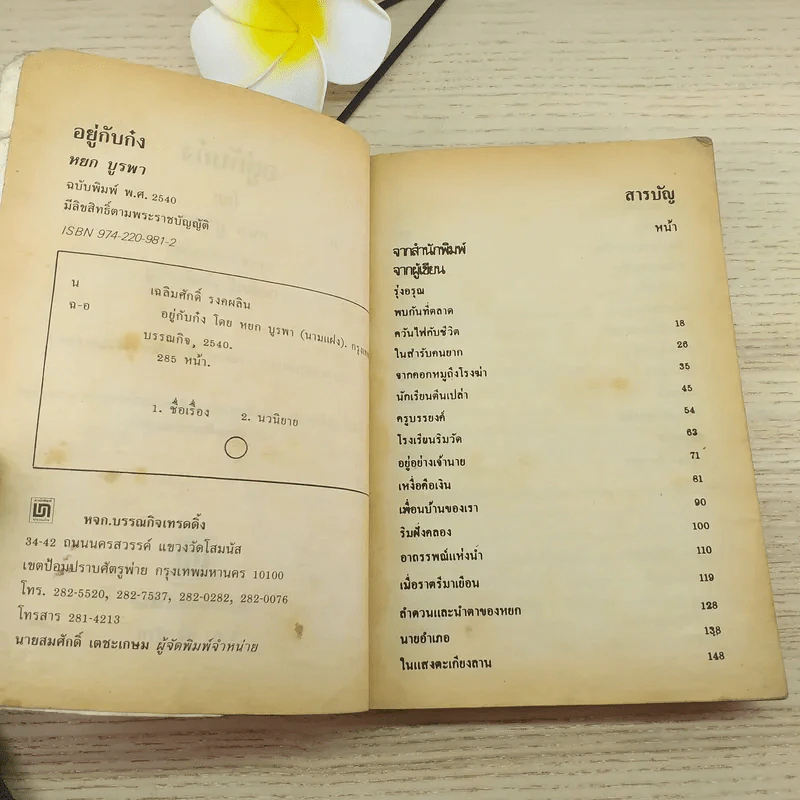 อยู่กับก๋ง
หยก บูรพา
ฉบับพิมพ์ พ.ศ. 2540
มีลิขสิทธิ์ตามพระราชบัญญัติ
ISBN 974-220-981-2
น เฉลิมศักดิ์ รงคผลิน
ฉ-อ อยู่กับก๋ง โดย หยก บูรพา (นามแฝง).
บรรณกิจ, 2540.
285 หน้า.
1. ชื่อเรื่อง 2. นวนิยาย
หจก.บรรณกิจเทรดดิ้ง
34-42 ถนนนครสวรรค์ แขวงวัดโสมนัส
เขตป้อมปราบศัตรูพ่าย กรุงเทพมหานคร 10100
โทร. 282-5520, 282-7537, 282-0282, 282-0076
โทรสาร 281-4213
นายสมศักดิ์ เตชะเกษม ผู้จัดพิมพ์จำหน่าย
สารบัญ
หน้า
จากสำนักพิมพ์
จากผู้เขียน
รุ่งอรุณ
พบกันที่ตลาด
ควันไฟกับชีวิต 18
ในสำรับคนยาก 26
จากคอกหมูถึงโรงฆ่า 35
นักเรียนตีนเปล่า 45
ครูบรรยงค์ 54
โรงเรียนริมวัด 63
อยู่อย่างเจ้านาย 71
เหงื่อคือเงิน 81
เพื่อนบ้านของเรา 90
ริมฝั่งคลอง 100
อาถรรพณ์แห่งน้ำ 110
เมื่อราตรีมาเยือน 119
ลำดวนและน้ำตาของหยก 128
นายอำเภอ 138
ในแสงตะเกียงลาน 148